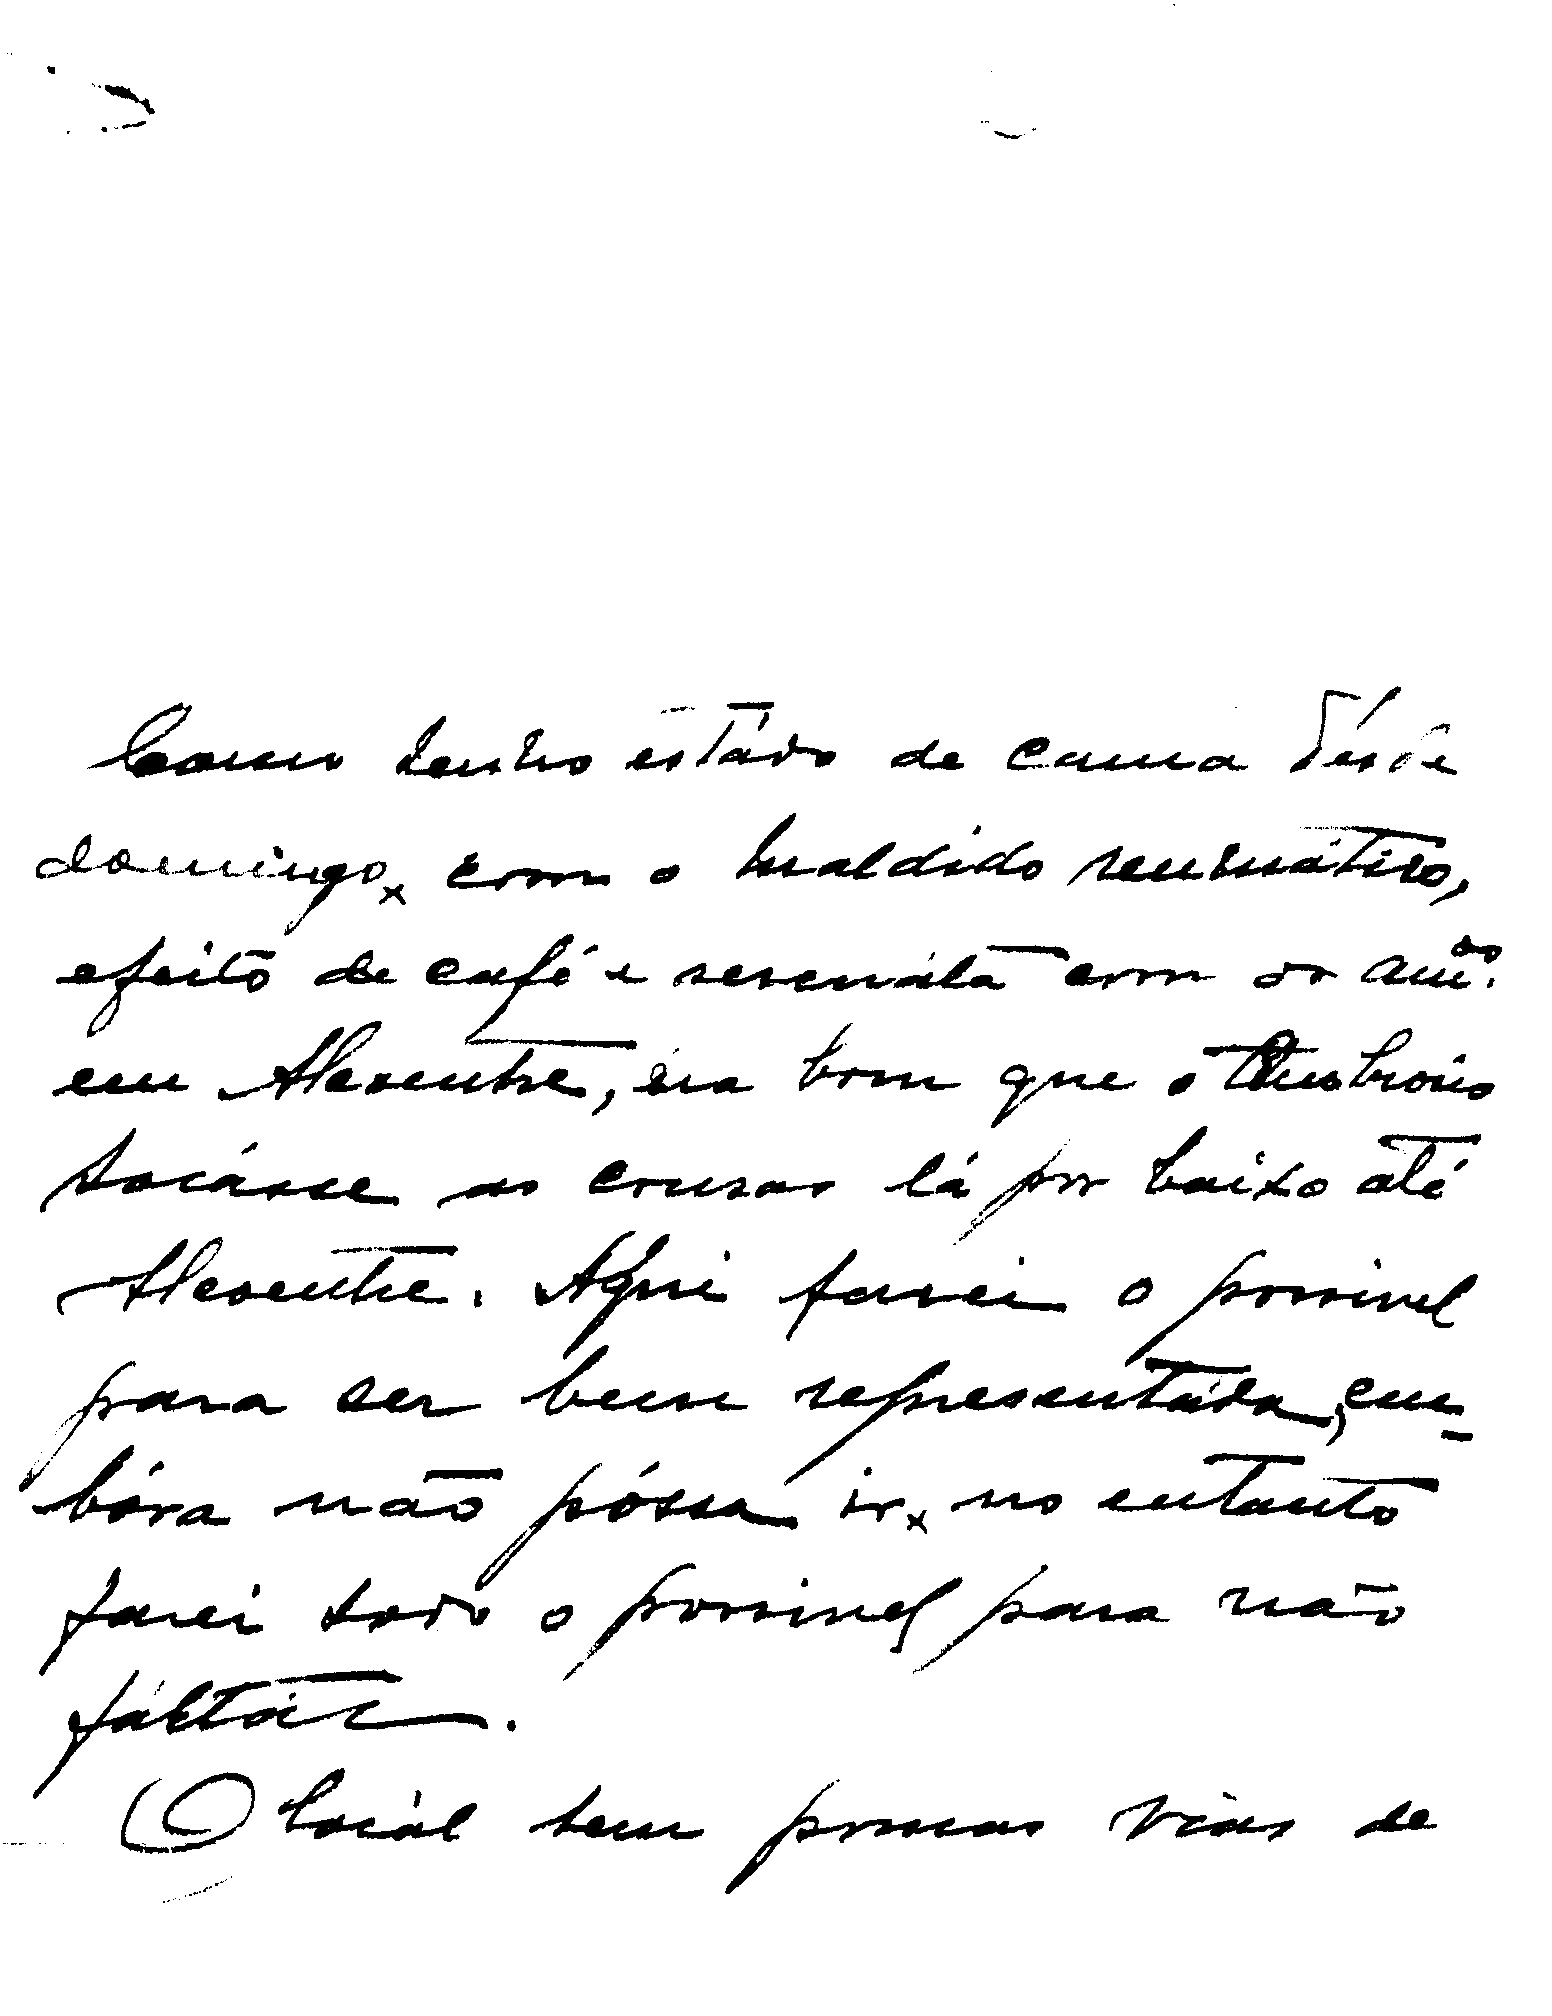 Como tenho estádo de cama désde
domingo, com o maldido reumático,
efeito de café e serenáta com os amos.
em Alexentre, éra bom que o
tocásse as cousas lá por baixo até
Alexentre. Aqui farei o possivel
para ser bem representáda, em-
bóra não póssa ir, no entanto
farei todo o possivel para não
fáltár.
O locál tem poucas vias de